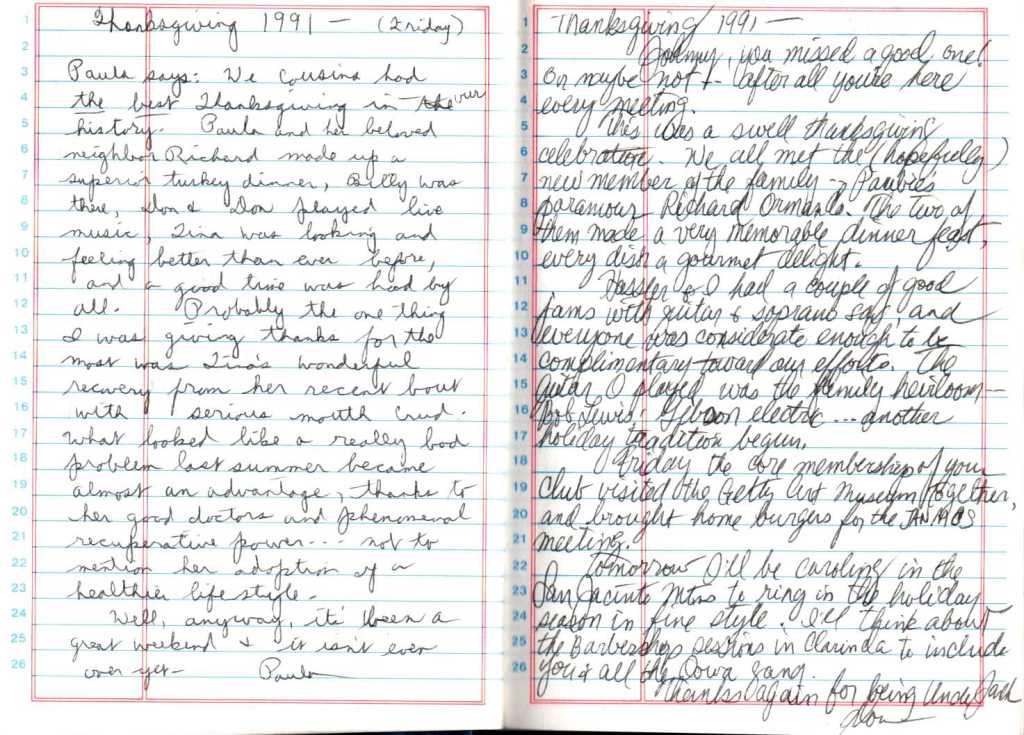 Thanksgiving 1991 — (Friday)
Paula says: We cousins had
the best Thanksgiving in the our
history. Paula and her beloved
neighbor Richard made up a
superior turkey dinner, Billy was
there, Don & Don played live
music, Tina was looking and
feeling better than ever before,
and a good time was had by
all. Probably the one thing
I was giving thanks for the
most was Tina's wonderful
recovery from her recent bout
with serious mouth crud.
What looked like a really bad
problem last summer became
almost an advantage, thanks to
her good doctors and phenomenal
recuperative power... not to
mention her adoption of a
healthier lifestyle.
Well, anyway, it's been a
great weekend & it isn't even
over yet— Paula
Thanksgiving 1991 —
you missed a good one!
Or maybe not — after all you're here
every meeting.
This was a swell thanksgiving
celebration. We all met the (hopefully)
new member of the family — Paulie's
paramour Richard. The two of
them made a very memorable dinner feast,
every dish a gourmet delight.
Hassler & I had a couple of good
jams with guitar & soprano sax and
everyone was considerate enough to be
complimentary toward our efforts. The
guitar I played was the family heirloom —
Bob Lewis' Gibson electric ... another
holiday tradition begun.
Friday the core membership of your
club visited the Getty Art Museum together,
and brought home burgers for the JANMACS
meeting.
Tomorrow I'll be caroling in the
San Jacinto Mtns to ring in the holiday
season in fine style. I'll think about
the Barbershop sessions in Clarinda to include
you & all the Iowa gang.
Thanks again for being Uncle Jack
Don